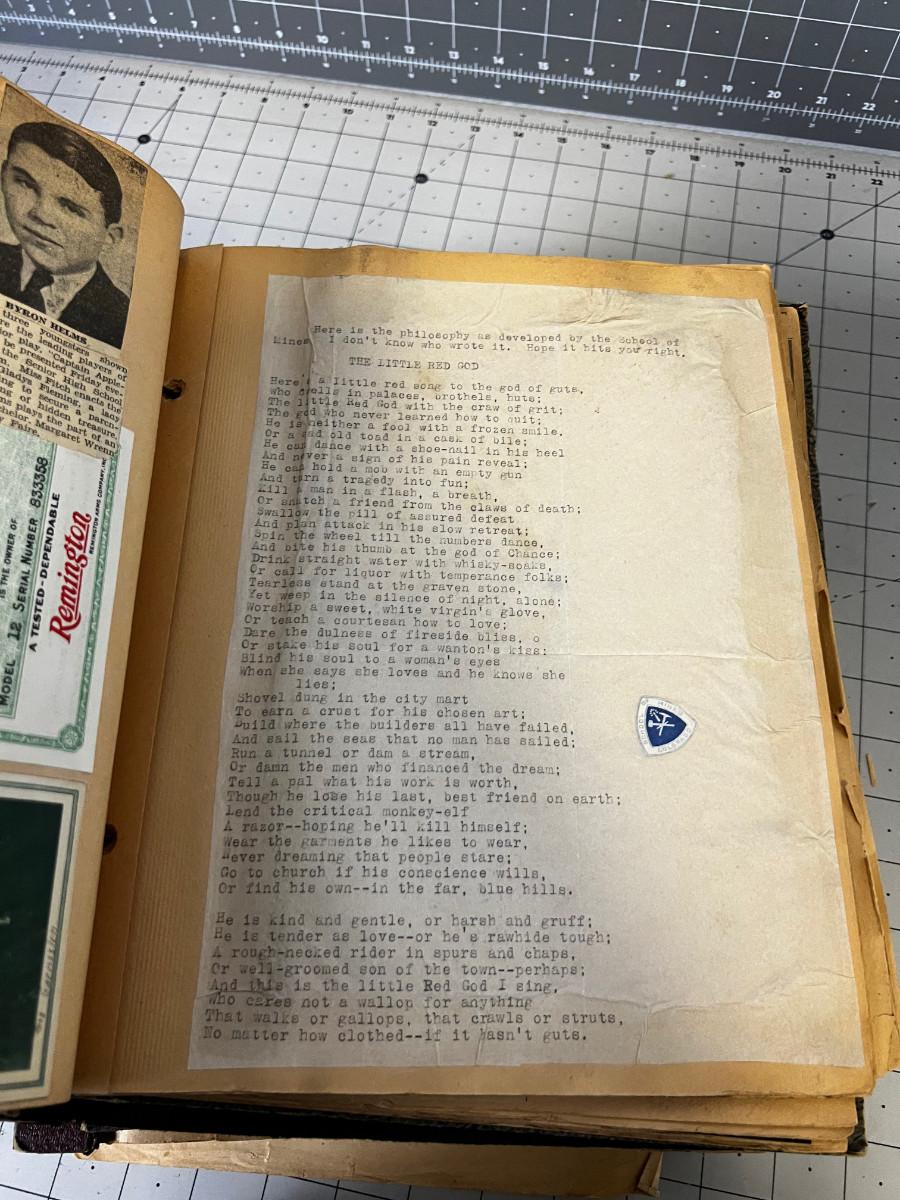 BYRON HELMS
three youngsters shown
re the leading players of
ior play, "Captain Apple-
be presented Friday eve-
the Senior High School
Miss Fitch enacts the
Gladys Faire, a
ing to secure a
ng of hidden treasure.
ms plays the part of an
chelor. Margaret Wrenn
Faire.
IS THE OWNER OF
MODEL 12 SERIAL NUMBER 833358
A TESTED-DEPENDABLE
Remington
REMINGTON ARMS COMPANY, INC.
Here is the philosophy as developed by the School of
Mines I don't know who wrote it. Hope it hits you right.
THE LITTLE RED GOD
Here's a little red song to the god of guts,
Who dwells in palaces, brothels, huts;
The little Red God with the craw of grit;
The god who never learned how to quit;
He is neither a fool with a frozen smile,
Or a sad old toad in a cask of bile;
He can dance with a shoe-nail in his heel
And never a sign of his pain reveal;
He can hold a mob with an empty gun
And turn a tragedy into fun;
Kill a man in a flash, a breath,
Or snatch a friend from the claws of death;
Swallow the pill of assured defeat
And plan attack in his slow retreat;
Spin the wheel till the numbers dance,
And bite his thumb at the god of Chance;
Drink straight water with whisky-soaks,
Or call for liquor with temperance folks;
Tearless stand at the graven stone,
Yet weep in the silence of night, alone;
Worship a sweet, white virgin's glove,
Or teach a courtesan how to love;
Dare the dulness of fireside bliss, o
Or stake his soul for a wanton's kiss:
Blind his soul to a woman's eyes
When she says she loves and he knows she
lies;
Shovel dung in the city mart
To earn a crust for his chosen art;
Build where the builders all have failed,
And sail the seas that no man has sailed;
Run a tunnel or dam a stream,
Or damn the men who financed the dream;
Tell a pal what his work is worth,
Though he lose his last, best friend on earth;
Lend the critical monkey-elf
A razor--hoping he'll kill himself;
Wear the garments he likes to wear,
Never dreaming that people stare;
Go to church if his conscience wills,
Or find his own--in the far, blue hills.
He is kind and gentle, or harsh and gruff;
He is tender as love--or he's rawhide tough;
A rough-necked rider in spurs and chaps,
Or well-groomed son of the town--perhaps;
And this is the little Red God I sing,
Who cares not a wallop for anything
That walks or gallops, that crawls or struts,
No matter how clothed--if it hasn't guts.
MINES
COLORADO